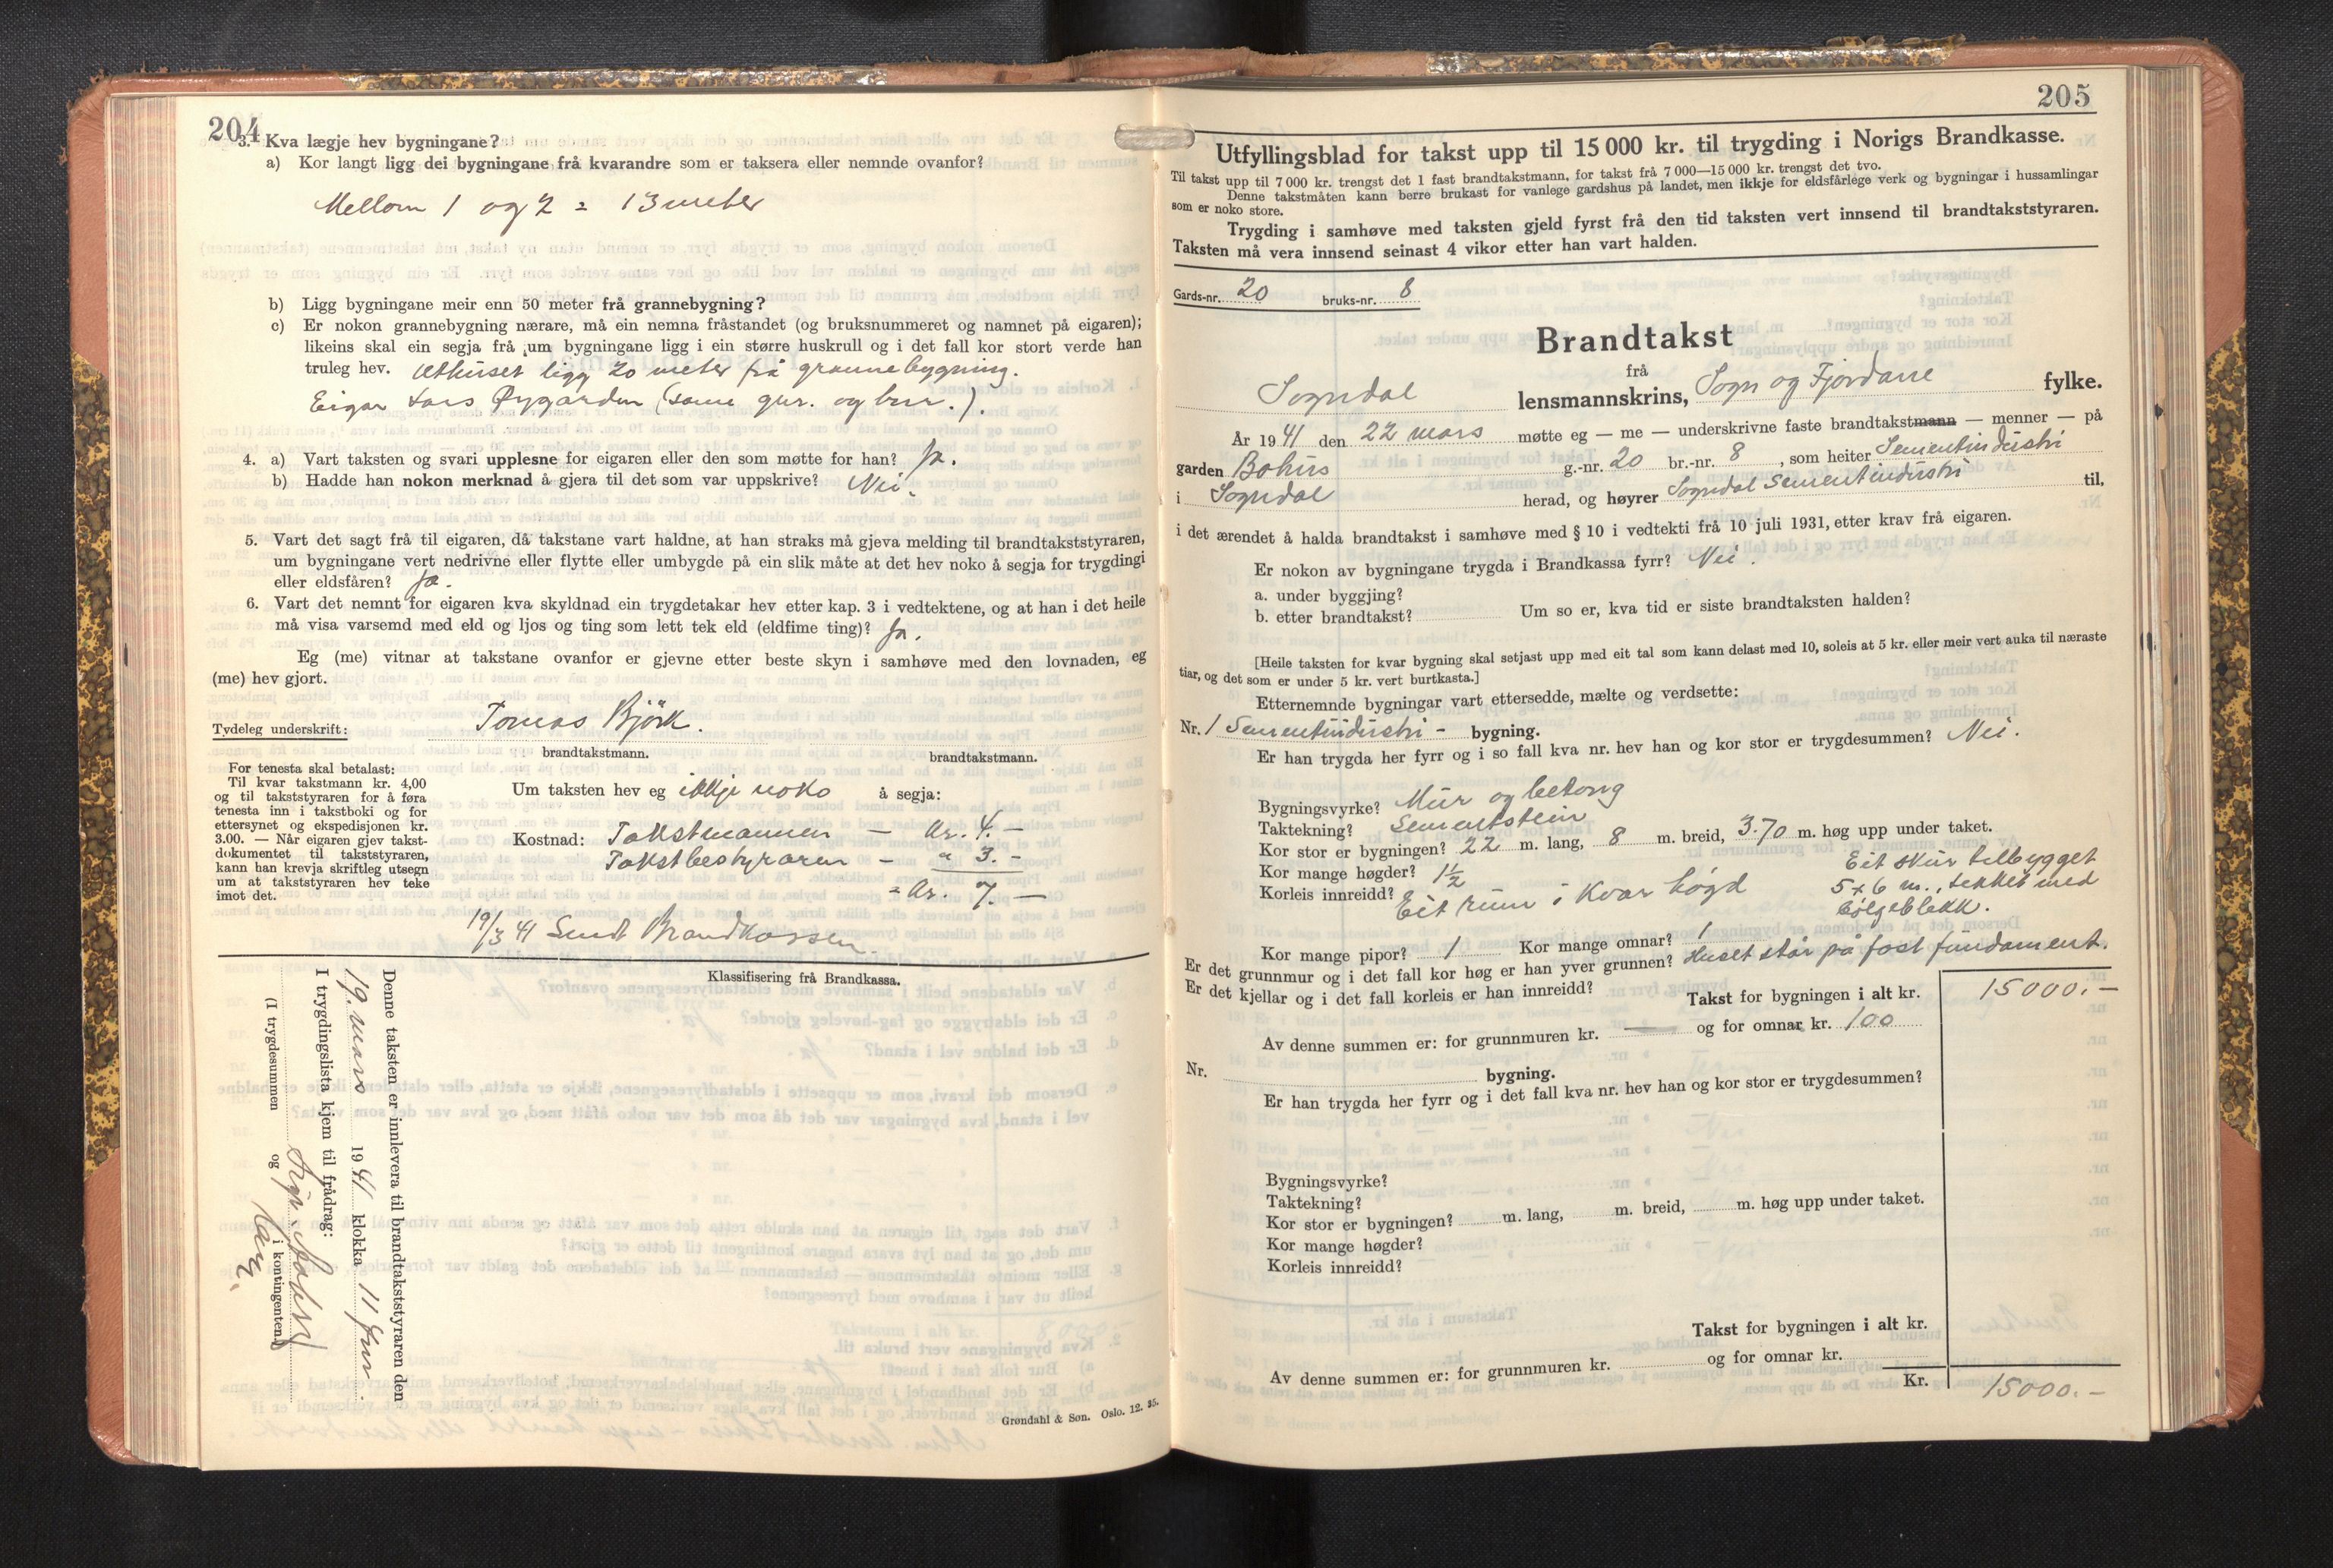 204
3. Kva lægje hev bygningane?
a) Kor langt ligg dei bygningane frå kvarandre som er taksera eller nemnde ovanfor?
Mellom 1 og 2 = 13 meter
b) Ligg bygningane meir enn 50 meter frå grannebygning?
c) Er nokon grannebygning nærare, må ein nemna fråstandet (og bruksnummeret og namnet på eigaren);
likeins skal ein segja frå um bygningane ligg i ein større huskrull og i det fall kor stort verde han
truleg hev. Uthuset ligg 20 meter frå grannebygning.
Eigar Lars Øygarden (same gnr. og bnr.).
4. a) Vart taksten og svari upplesne for eigaren eller den som møtte for han? Ja.
b) Hadde han nokon merknad å gjera til det som var uppskrive? Nei.
5. Vart det sagt frå til eigaren, då takstane vart haldne, at han straks må gjeva melding til brandtakststyraren,
um bygningane vert nedrivne eller flytte eller umbygde på ein slik måte at det hev noko å segja for trygdingi
eller eldsfåren? Ja.
6. Vart det nemnt for eigaren kva skyldnad ein trygdetakar hev etter kap. 3 i vedtektene, og at han i det heile
må visa varsemd med eld og ljos og ting som lett tek eld (eldfime ting)? Ja.
Eg (me) vitnar at takstane ovanfor er gjevne etter beste skyn i samhøve med den lovnaden, eg
(me) hev gjort.
Tydeleg underskrift: Tomas Bjørk.
brandtakstmann. brandtakstmann.
For tenesta skal betalast:
Til kvar takstmann kr. 4,00
og til takststyraren for å føra
tenesta inn i takstboki og for
ettersynet og ekspedisjonen kr.
3.00. — Når eigaren gjev takst-
dokumentet til takststyraren,
kann han krevja skriftleg utsegn
um at takststyraren hev teke
imot det.
Um taksten hev eg ikkje noko å segja:
Kostnad: Takstmannen — kr. 4.—
Takstbestyraren — " 3.—
= kr. 7.—
19/3 41 Sendt Brandkassen.
Klassifisering frå Brandkassa.
Denne taksten er innlevera til brandtakststyraren den
19. mars 1941 klokka 11 fm.
I trygdingslista kjem til frådrag:
(I trygdesummen og i kontingenten.)
Grøndahl & Søn. Oslo. 12. 35.
205
Utfyllingsblad for takst upp til 15 000 kr. til trygding i Norigs Brandkasse.
Til takst upp til 7 000 kr. trengst det 1 fast brandtakstmann, for takst frå 7 000—15 000 kr. trengst det tvo.
Denne takstmåten kann berre brukast for vanlege gardshus på landet, men ikkje for eldsfårlege verk og bygningar i hussamlingar
som er noko store.
Trygding i samhøve med taksten gjeld fyrst frå den tid taksten vert innsend til brandtakststyraren.
Taksten må vera innsend seinast 4 vikor etter han vart halden.
Gards-nr. 20 bruks-nr. 8
Brandtakst
frå
Sogndal lensmannskrins, Sogn og Fjordane fylke.
År 1941 den 22 mars møtte eg — me — underskrivne faste brandtakstmann — menner — på
garden Bohus g.-nr. 20 br.-nr. 8, som heiter Sementindustri
i Sogndal herad, og høyrer Sogndal Sementindustri til,
i det ærendet å halda brandtakst i samhøve med § 10 i vedtekti frå 10 juli 1931, etter krav frå eigaren.
Er nokon av bygningane trygda i Brandkassa fyrr? Nei.
a. under byggjing?
b. etter brandtakst? Um so er, kva tid er siste brandtaksten halden?
[Heile taksten for kvar bygning skal setjast upp med eit tal som kann delast med 10, soleis at 5 kr. eller meir vert auka til næraste
tiar, og det som er under 5 kr. vert burtkasta.]
Etternemnde bygningar vart ettersedde, mælte og verdsette:
Nr. 1 Sementindustri - bygning.
Er han trygda her fyrr og i so fall kva nr. hev han og kor stor er trygdesummen? Nei.
Bygningsvyrke? Mur og betong
Taktekning? Sementstein
Kor stor er bygningen? 22 m. lang, 8 m. breid, 3.70 m. høg upp under taket.
Kor mange høgder? 1½
Korleis innreidd? Eit rum i kvar høgd
Eit skur tilbygget
5 x 6 m., tekket med
bølgeblekk.
Kor mange pipor? 1 Kor mange omnar? 1
Er det grunnmur og i det fall kor høg er han yver grunnen? Huset står på fast fundament.
Er det kjellar og i det fall korleis er han innreidd?
Takst for bygningen i alt kr. 15000.—
Av denne summen er: for grunnmuren kr. — og for omnar kr. 100
Nr. bygning.
Er han trygda her fyrr og i det fall kva nr. hev han og kor stor er trygdesummen?
Bygningsvyrke?
Taktekning?
Kor stor er bygningen? m. lang, m. breid, m. høg upp under taket.
Kor mange høgder?
Korleis innreidd?
Takst for bygningen i alt kr.
Av denne summen er: for grunnmuren kr. og for omnar kr.
Kr. 15000.—